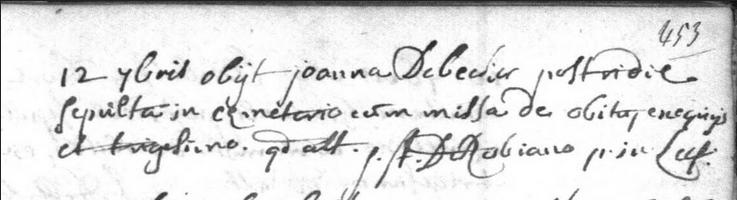 453
12 7bris obijt joanna Debecker postridie
sepulta in cemeterio cum missa de obitu, exequijs
et trigesimo. qd att. p. fr. De Robiano p. in